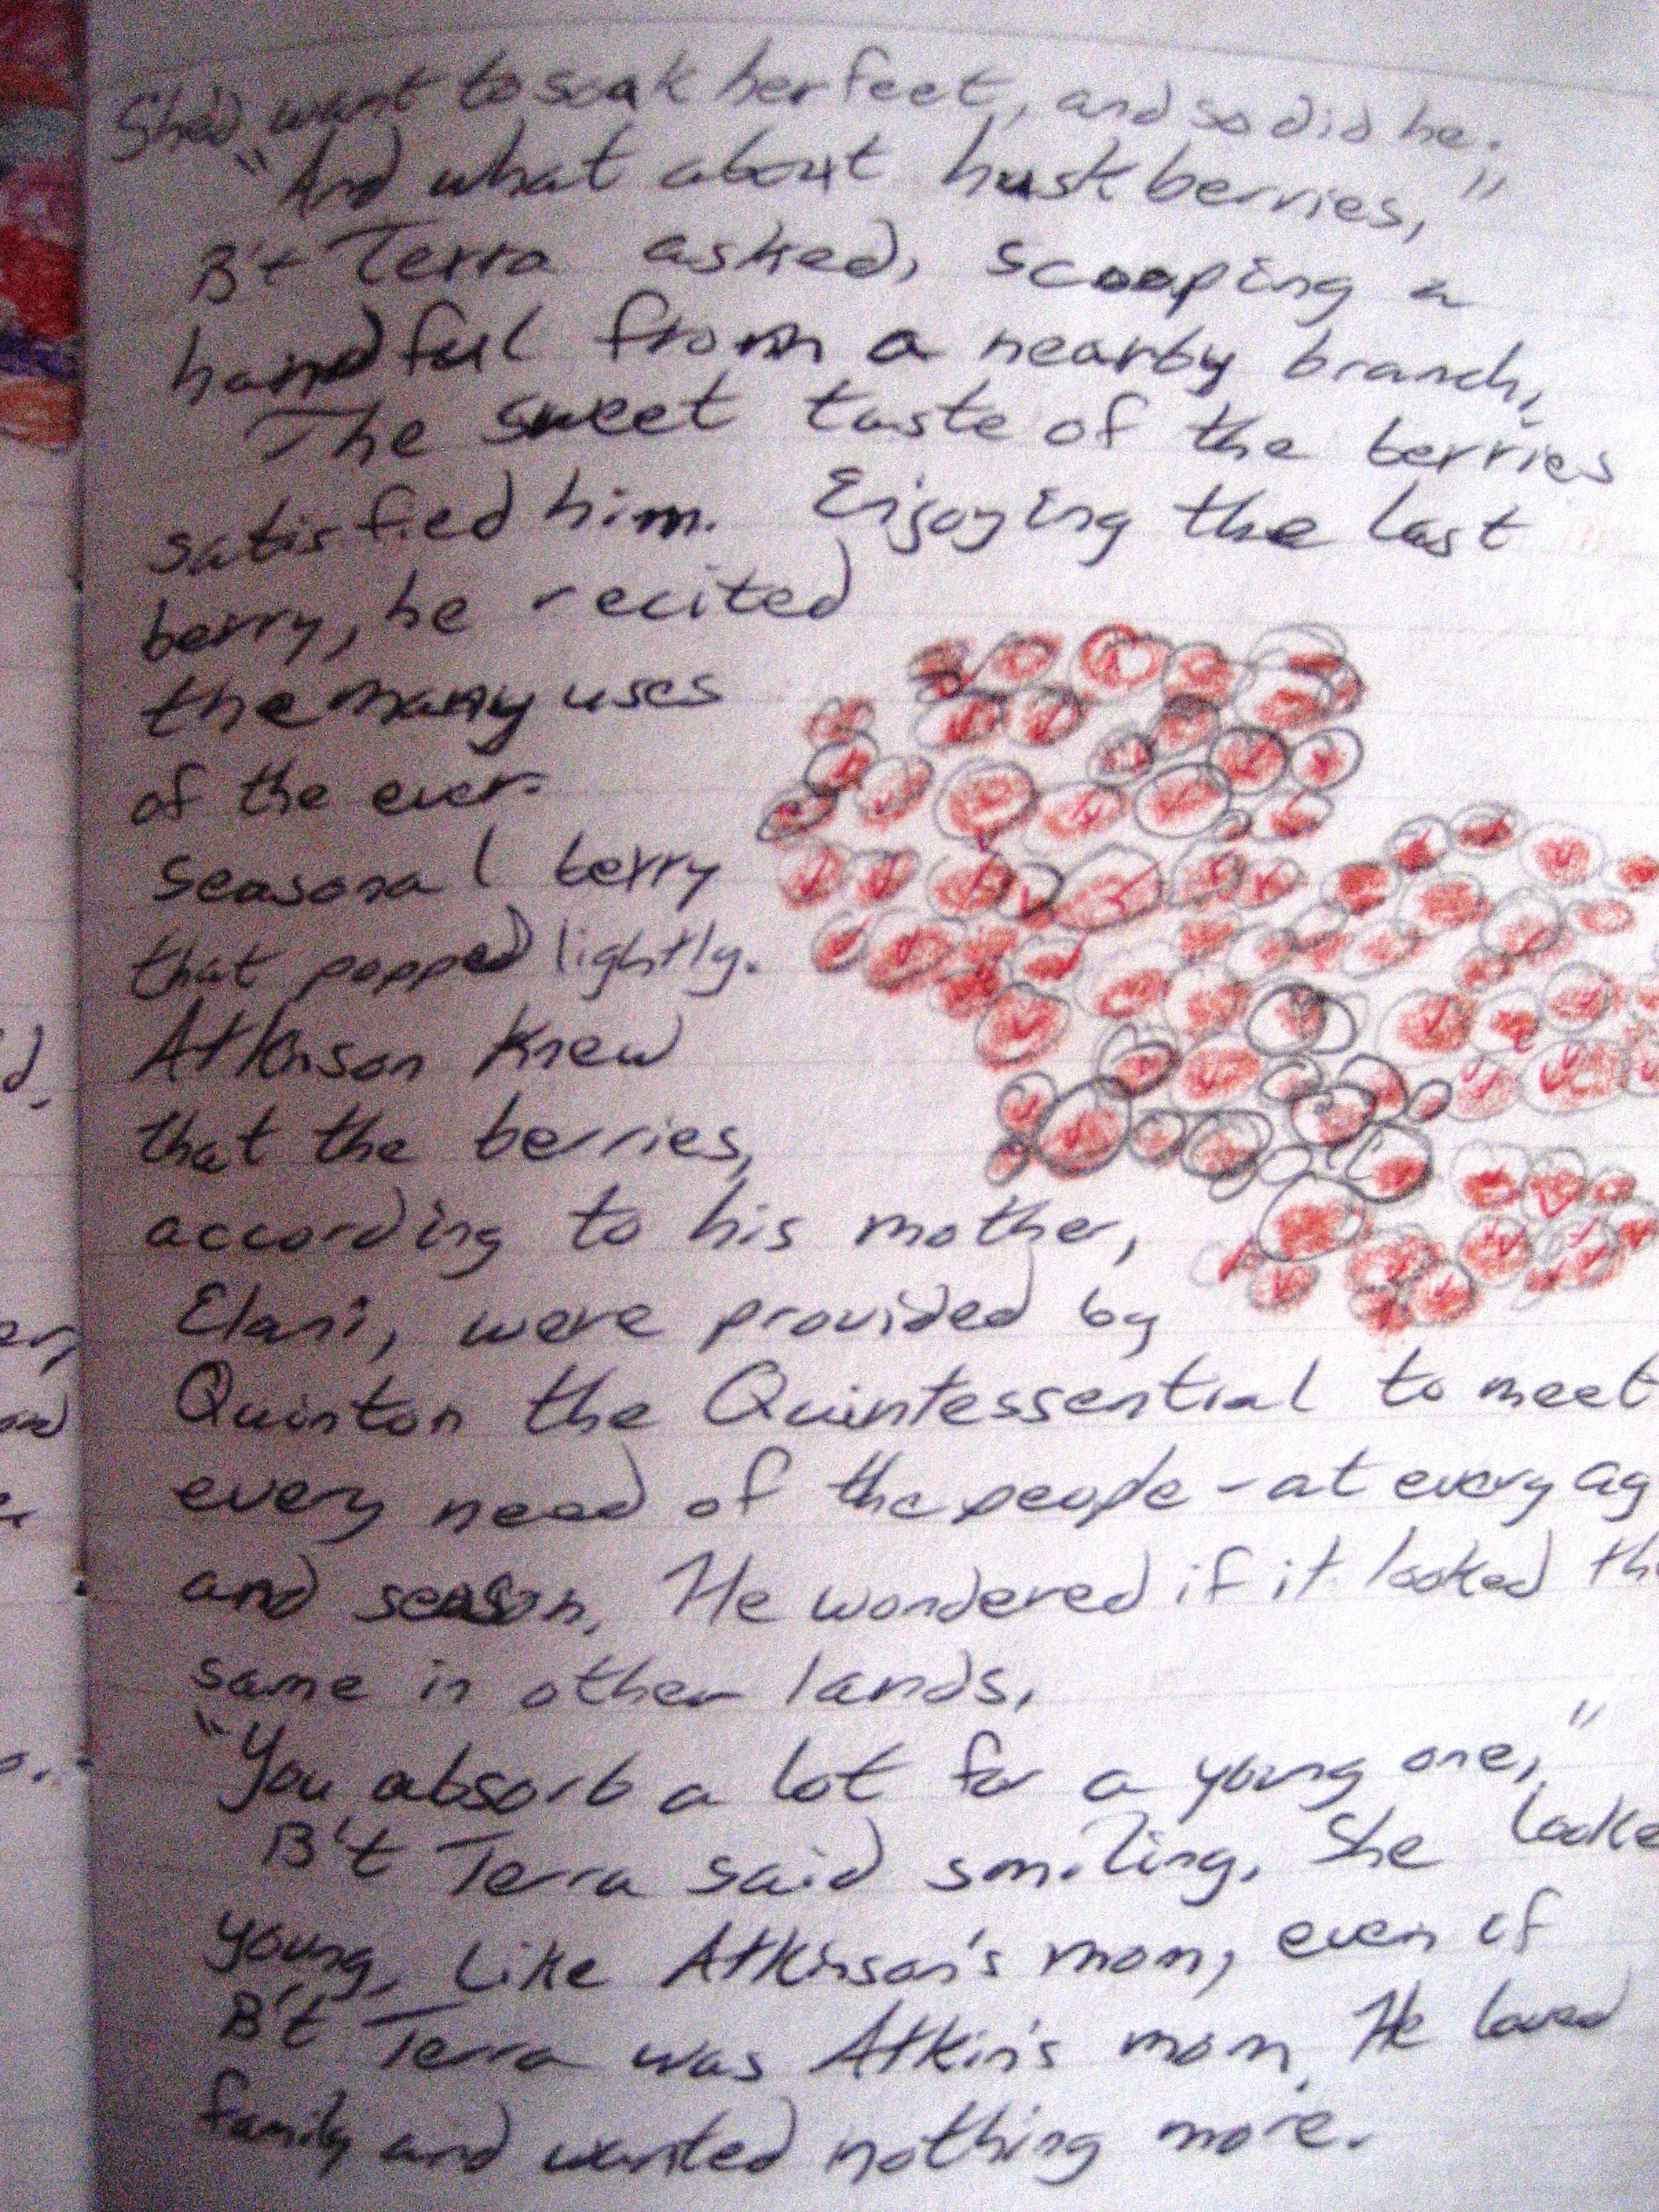 She'd want to soak her feet, and so did he.
"And what about husk berries,"
B't Terra asked, scooping a
handful from a nearby branch,
The sweet taste of the berries
satisfied him. Enjoying the last
berry, he recited
the many uses
of the ever-
seasonal berry
that popped lightly.
Atkinson knew
that the berries,
according to his mother,
Elani, were provided by
Quinton the Quintessential to meet
every need of the people - at every ag
and season. He wondered if it looked the
same in other lands.
"You absorb a lot for a young one,"
B't Terra said smiling. She looke
young, like Atkinson's mom, even if
B't Terra was Atkin's mom. He loved
family and wanted nothing more.